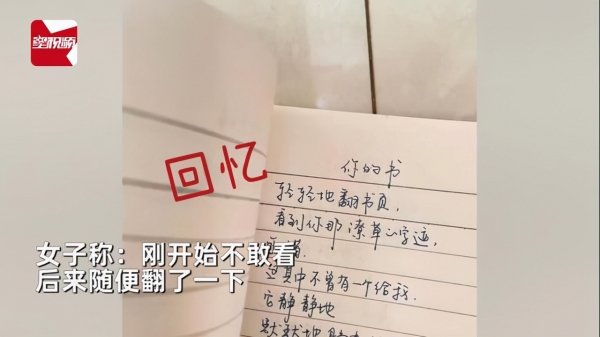 星视频
回忆
你的书
轻轻地翻书页,
看到你那潦草的字迹,
这其中不曾有一个给我.
它静静地
默默地
女子称：刚开始不敢看
后来随便翻了一下